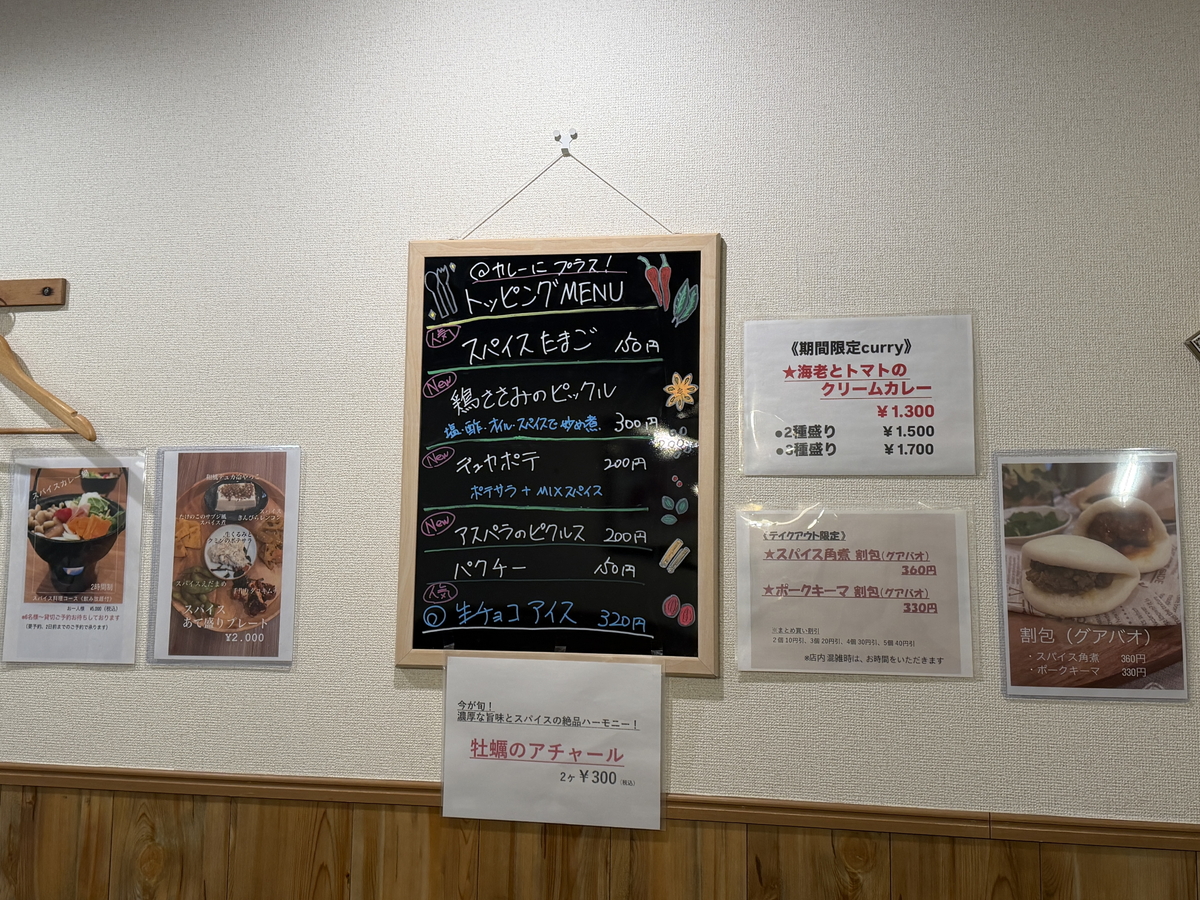 スパイスカレー
2時間制
スパイス料理コース(飲み放題付)
お一人様 ¥5,000 (税込)
※6名様〜貸切ご予約お待ちしております
(要予約、2日前までのご予約で承ります)
和風デュカ塩やっこ
たけのこのサブジ風
スパイス煮
スパイス
きんぴらレンコン
生くるみと
クミンのポテサラ
スパイスえだまめ
スパイス
あて盛りプレート
¥2.000
@カレーに プラス!
トッピングMENU
人気
スパイスたまご 150円
New
鶏ささみのピックル
塩・酢・オイル・スパイスで炒め煮 300円
New
デュカポテ 200円
ポテサラ + MIXスパイス
New
アスパラのピクルス 200円
パクチー 150円
人気
@ 生チョコアイス 320円
今が旬!
濃厚な旨味とスパイスの絶品ハーモニー!
牡蠣のアチャール
2ヶ ¥300 (税込)
《期間限定curry》
★海老とトマトの
クリームカレー
¥1.300
●2種盛り ¥1.500
●3種盛り ¥1.700
《テイクアウト限定》
★スパイス角煮 割包(グアバオ)
360円
★ポークキーマ 割包(グアバオ)
330円
※まとめ買い割引
2個10円引、3個20円引、4個30円引、5個40円引
※店内混雑時は、お時間をいただきます
割包(グアバオ)
・スパイス角煮 360円
・ポークキーマ 330円